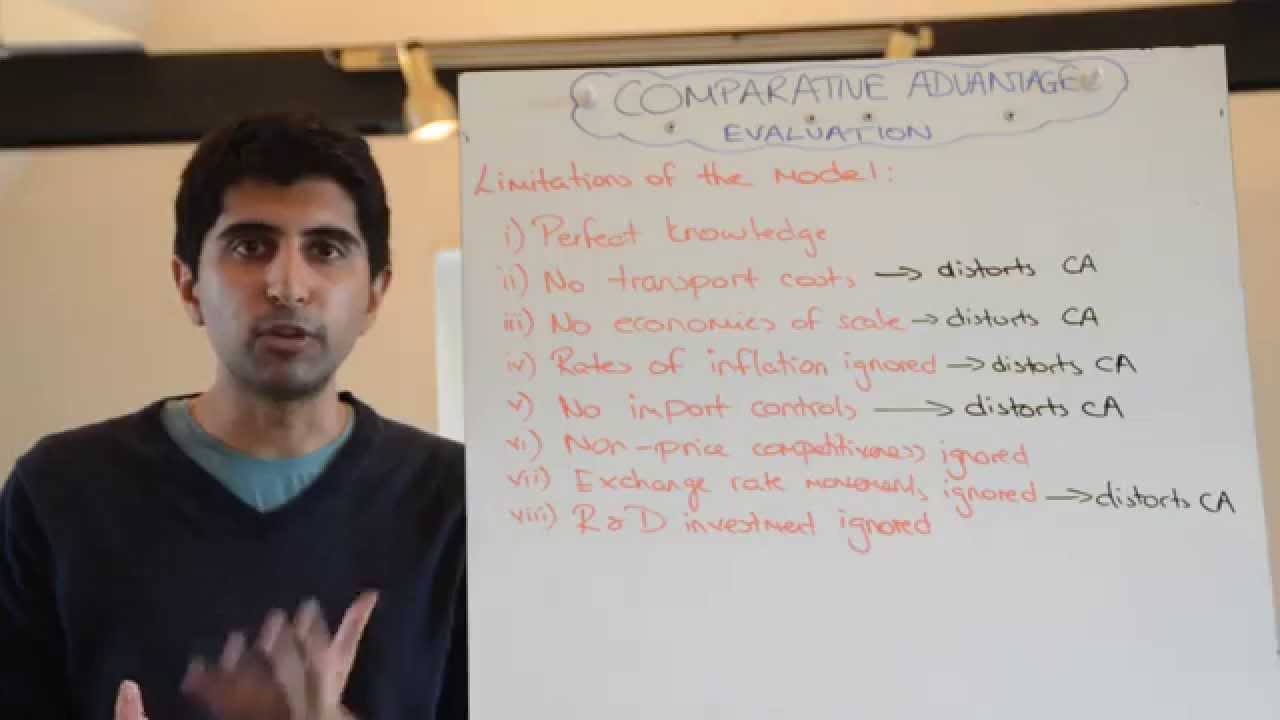 COMPARATIVE ADVANTAGE
EVALUATION
Limitations of the model:
i) Perfect knowledge
ii) No transport costs → distorts CA
iii) No economies of scale → distorts CA
iv) Rates of inflation ignored → distorts CA
v) No import controls → distorts CA
vi) Non-price competitiveness ignored
vii) Exchange rate movements ignored → distorts CA
viii) R&D investment ignored